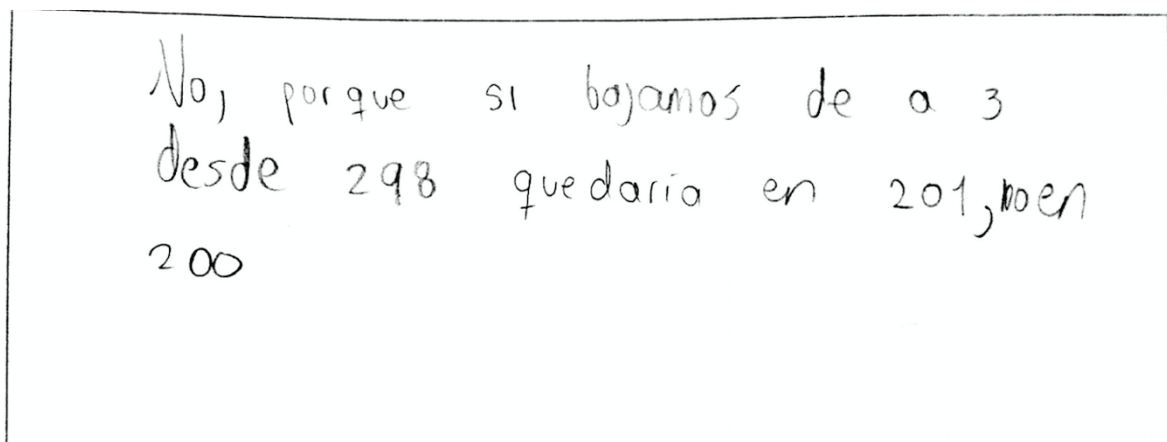 No, porque si bajamos de a 3
desde 298 quedaria en 201, no en
200